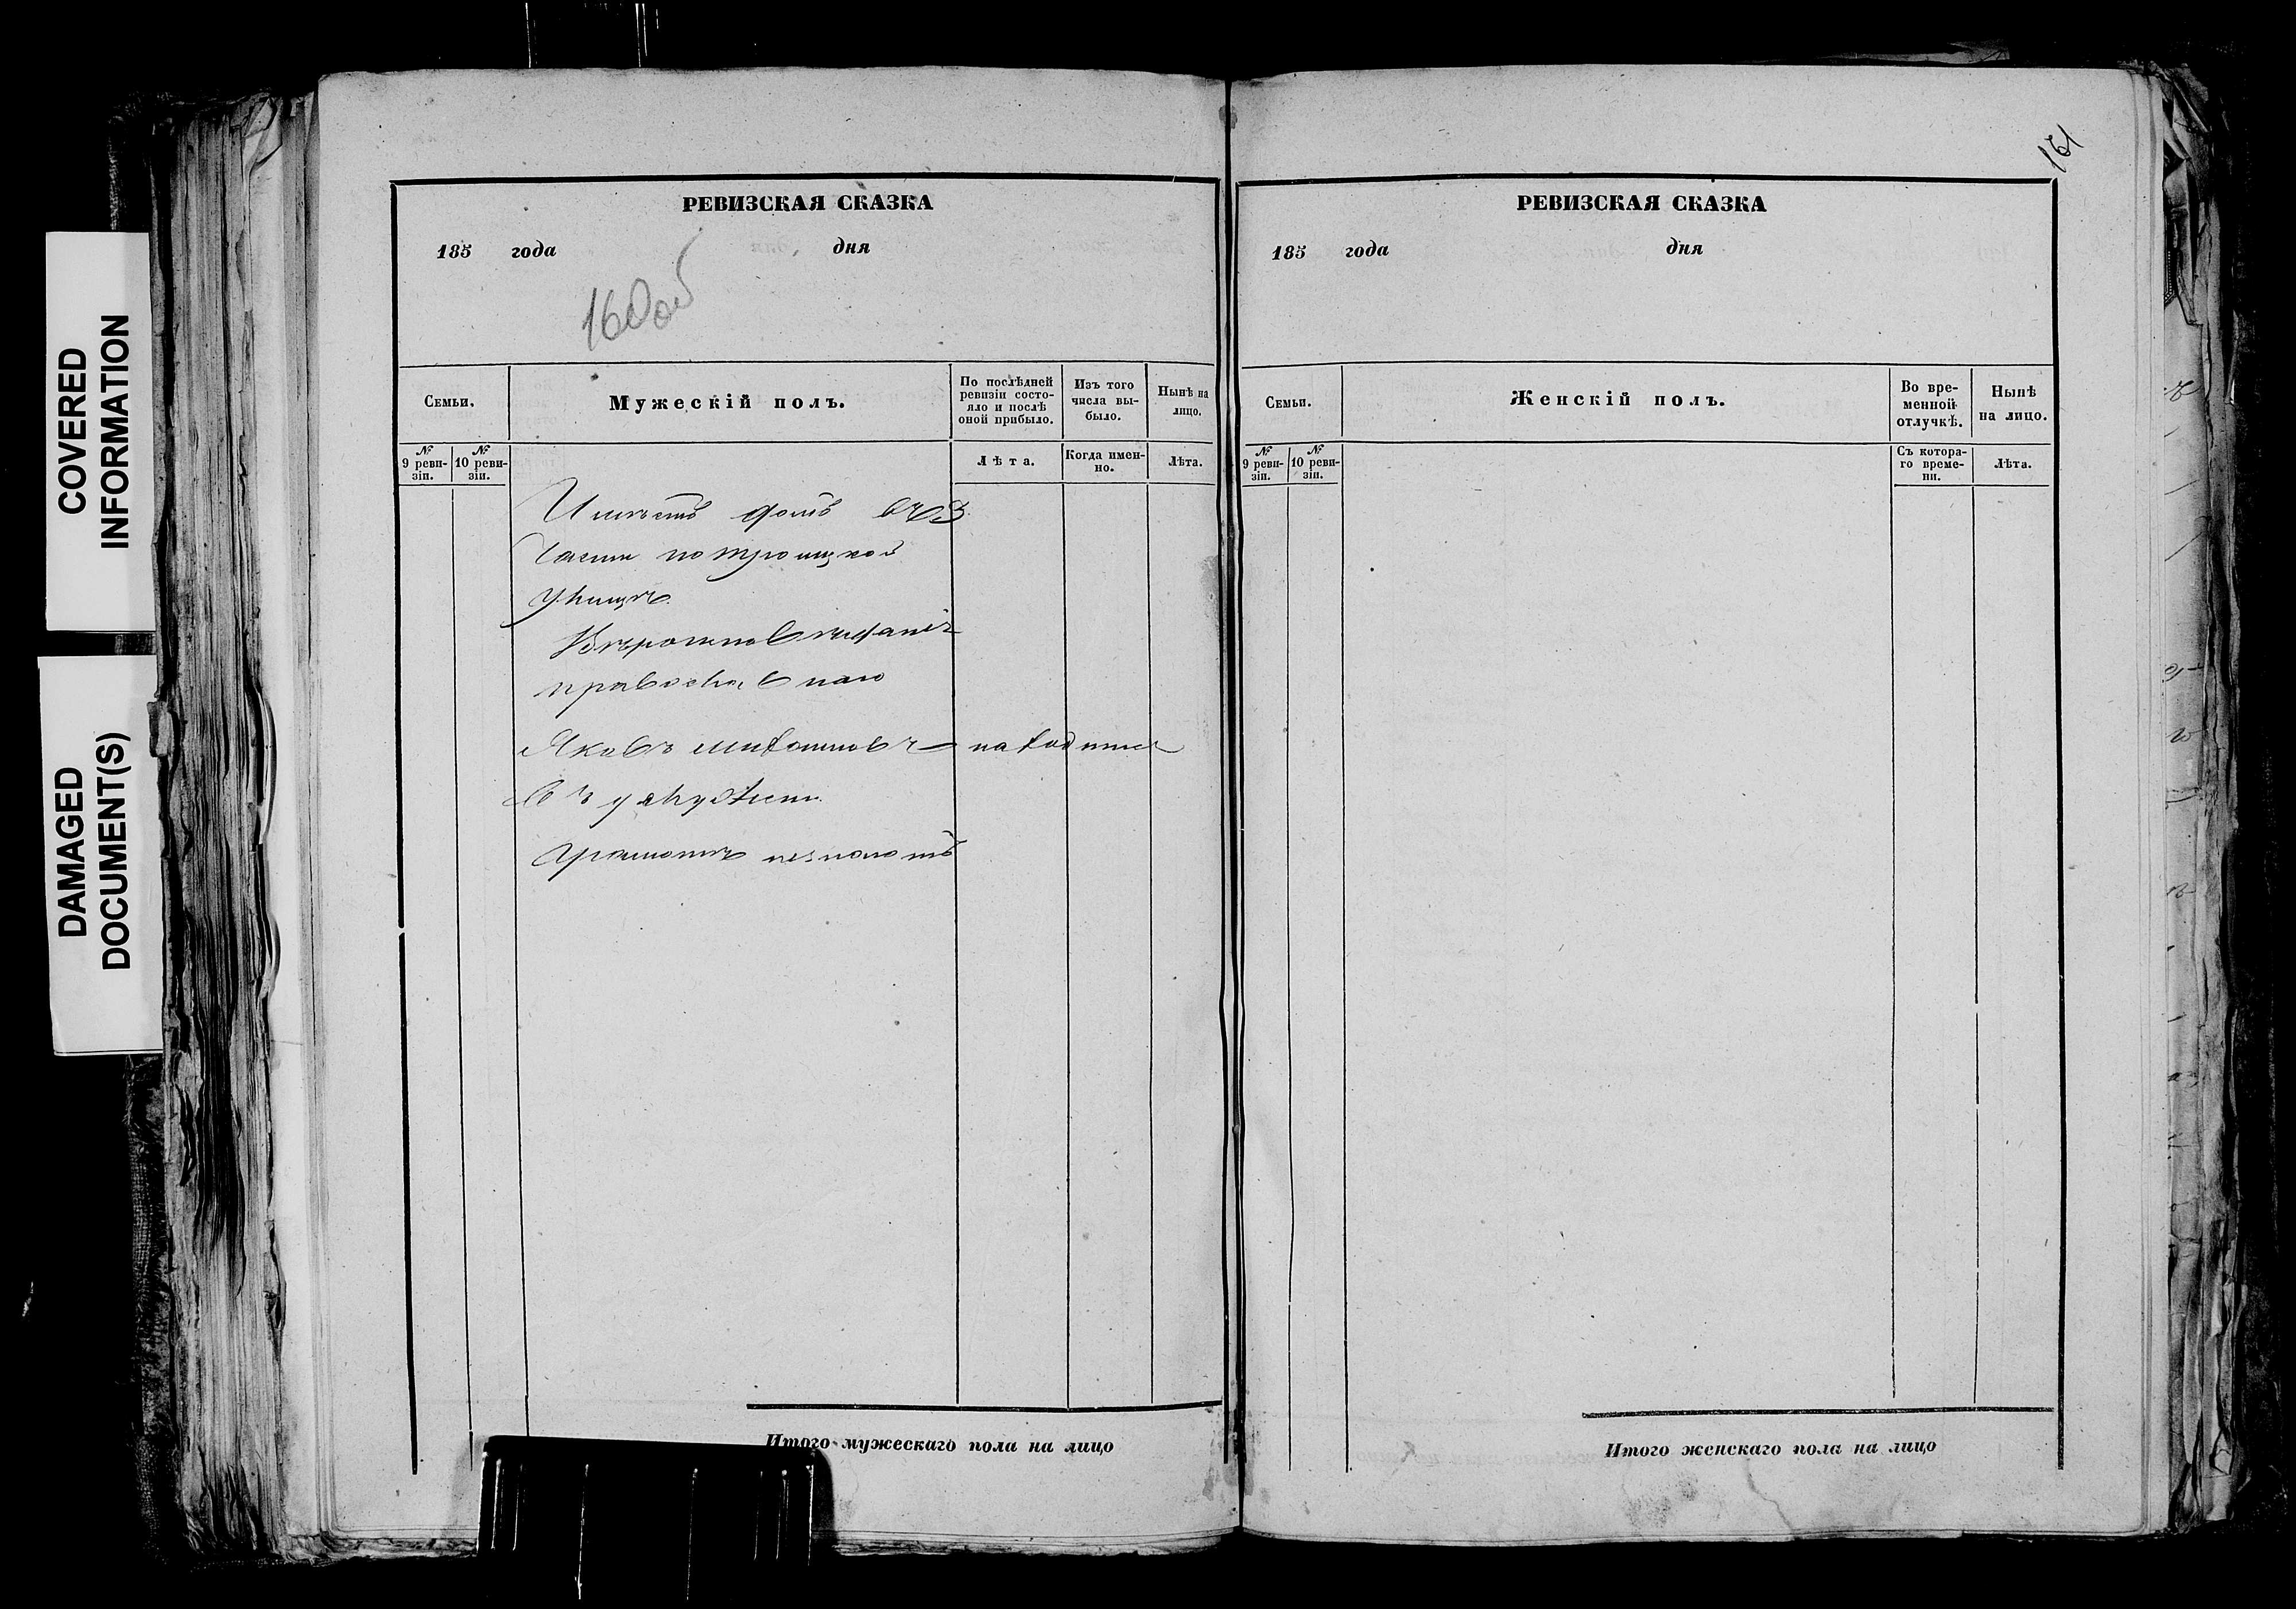 COVERED
INFORMATION
DAMAGED
DOCUMENT(S)
РЕВИЗСКАЯ СКАЗКА
185 года дня
160об
Семьи.
Мужескій полъ.
По послѣдней ревизіи состояло и послѣ оной прибыло.
Изъ того числа выбыло.
Нынѣ на лицо.
№ 9 ревизіи.
№ 10 ревизіи.
Лѣта.
Когда именно.
Лѣта.
Имѣетъ домъ въ 3
Части по троицкой
улицѣ
Вѣроисповѣданіе
православнаго
Яковъ находится
въ
Грамотѣ незнаютъ
Итого мужескаго пола на лицо
161
РЕВИЗСКАЯ СКАЗКА
185 года дня
Семьи.
Женскій полъ.
Во временной отлучкѣ.
Нынѣ на лицо.
№ 9 ревизіи.
№ 10 ревизіи.
Съ котораго времени.
Лѣта.
Итого женскаго пола на лицо